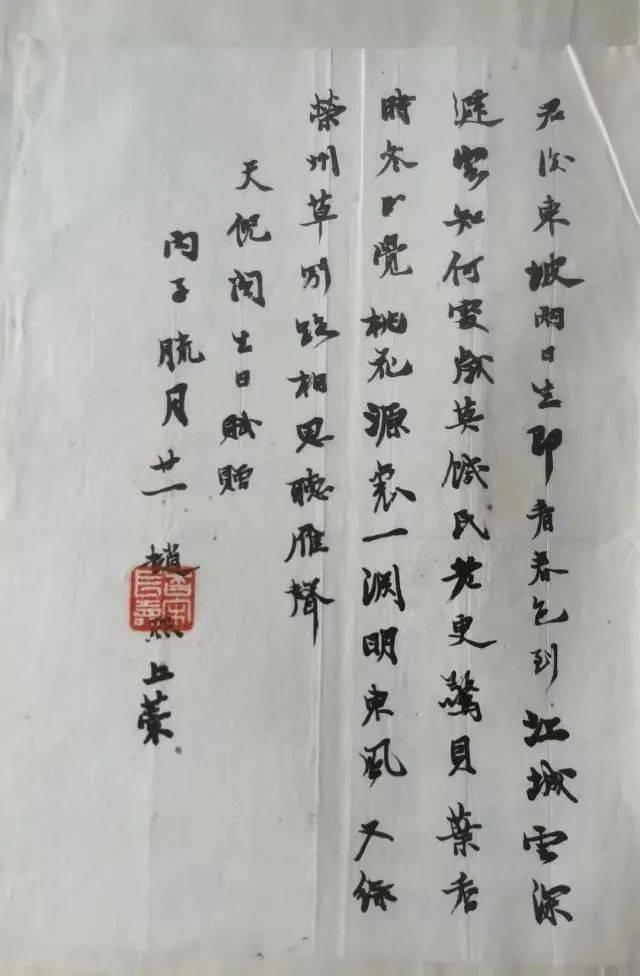 君後東坡兩日生即看春色到江城雲深
客知何處歲莫饑民老更驚貝葉香
時參正覺桃花源裏一淵明東風又綠
榮州草別路相思聽雁聲
天倪閣生日賦贈
丙子臘月廿一 趙熙上榮